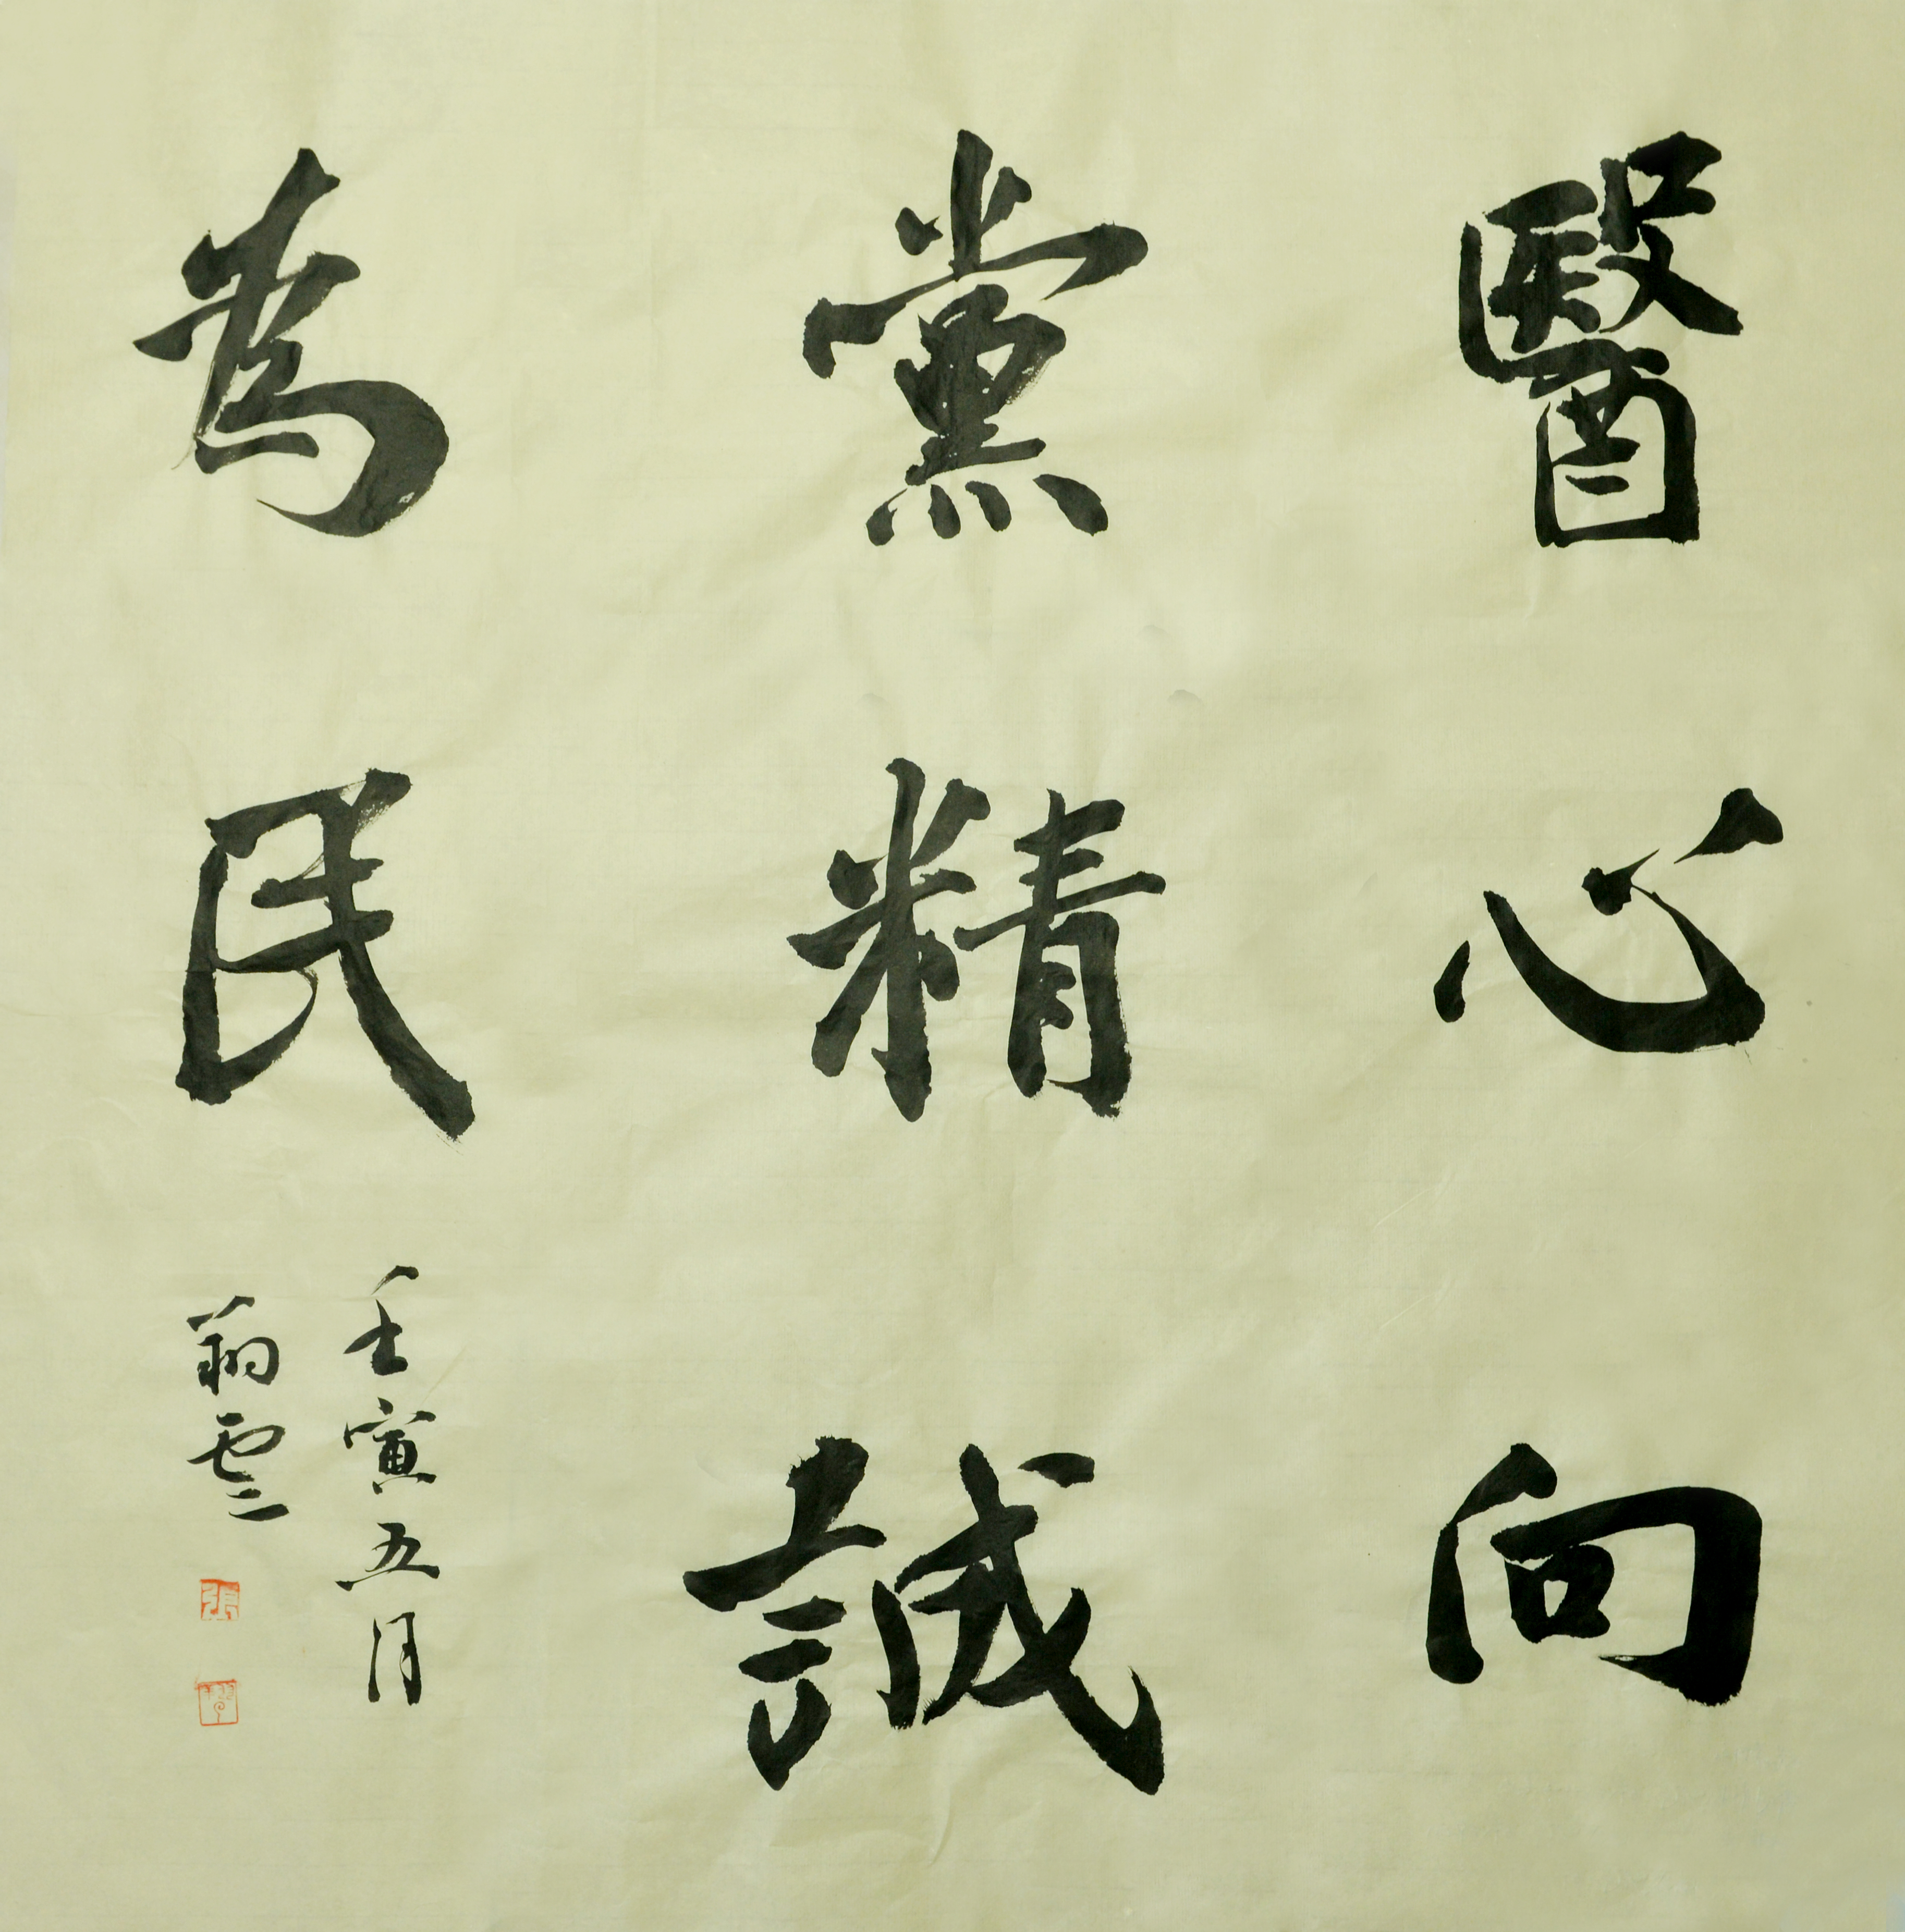 醫心向
黨精誠
為民
壬寅五月
翔雲
張